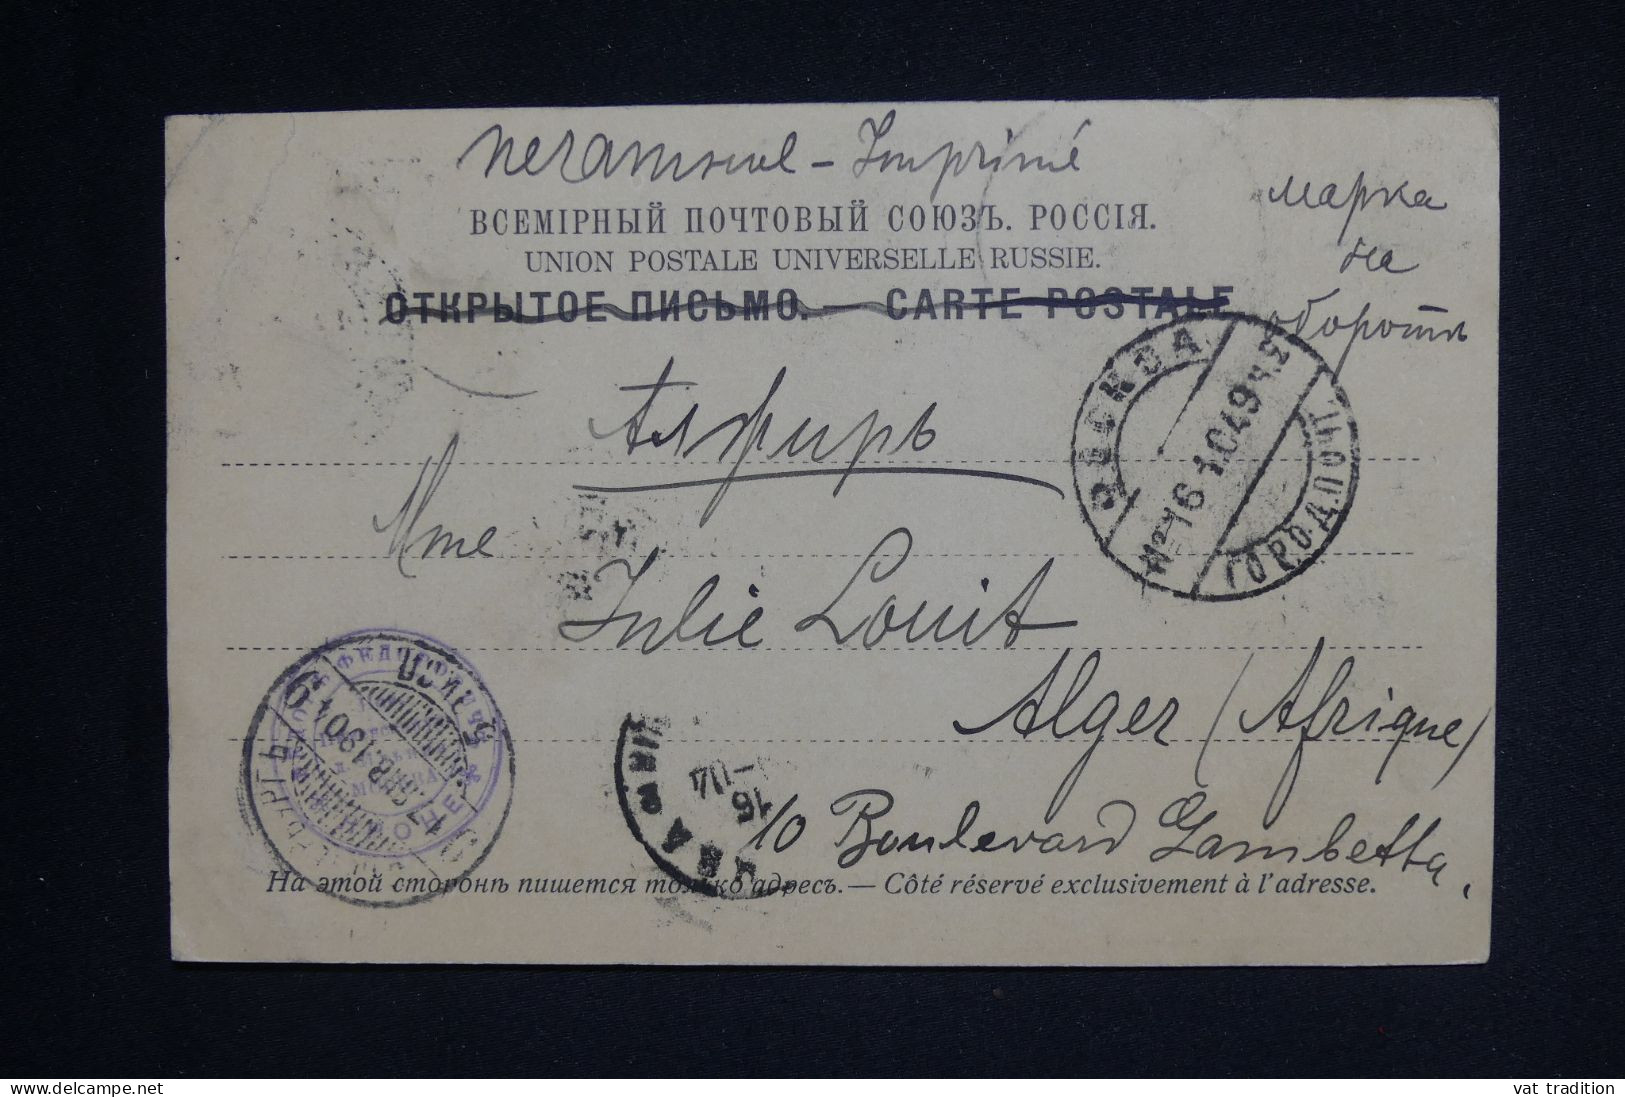 печатное - Imprimé
ВСЕМІРНЫЙ ПОЧТОВЫЙ СОЮЗЪ. РОССІЯ.
UNION POSTALE UNIVERSELLE RUSSIE.
ОТКРЫТОЕ ПИСЬМО. — CARTE POSTALE
марка
на
оборотѣ
Алжиръ
Mme
Julie Louit
Alger (Afrique)
10 Boulevard Gambetta,
На этой сторонѣ пишется только адресъ. — Côté réservé exclusivement à l'adresse.
МОСКВА
ГОРОД.ПОЧ
МОСКВА
vat tradition